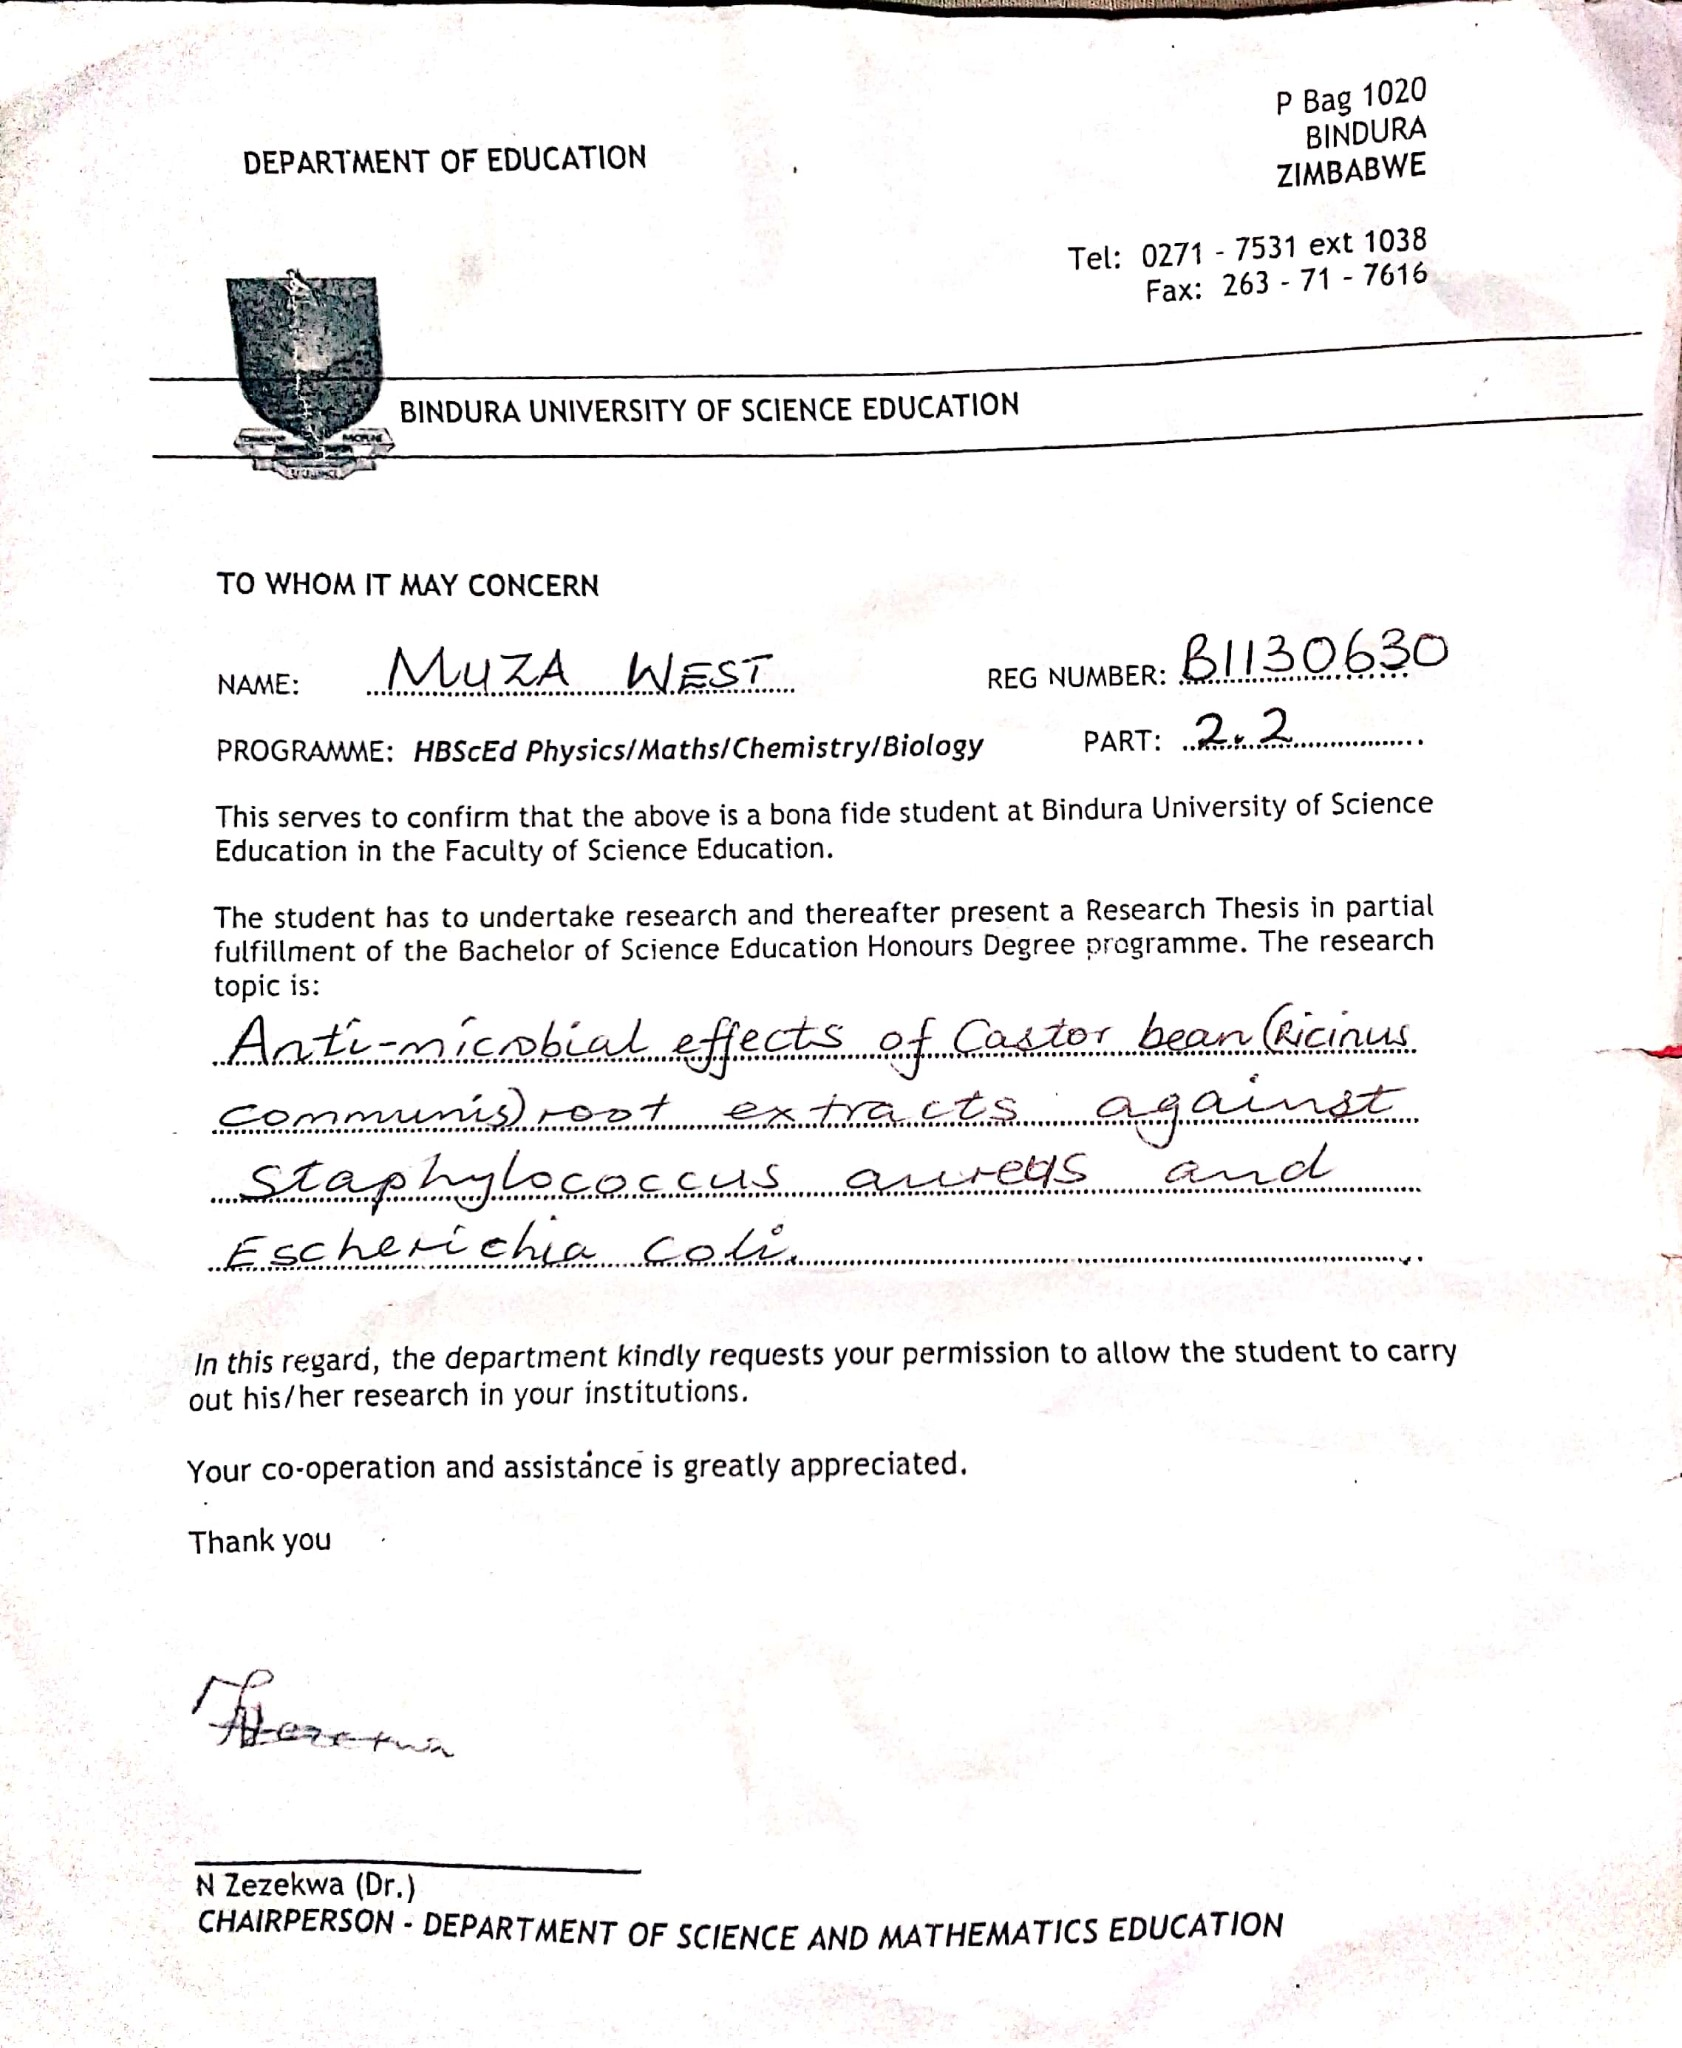 DEPARTMENT OF EDUCATION
P Bag 1020
BINDURA
ZIMBABWE
Tel: 0271 - 7531 ext 1038
Fax: 263 - 71 - 7616
BINDURA UNIVERSITY OF SCIENCE EDUCATION
TO WHOM IT MAY CONCERN
NAME: MUZA WEST REG NUMBER: B1130630
PROGRAMME: HBScEd Physics/Maths/Chemistry/Biology PART: 2.2
This serves to confirm that the above is a bona fide student at Bindura University of Science
Education in the Faculty of Science Education.
The student has to undertake research and thereafter present a Research Thesis in partial
fulfillment of the Bachelor of Science Education Honours Degree programme. The research
topic is:
Anti-microbial effects of Castor bean (Ricinus
communis) root extracts against
Staphylococcus aureus and
Escherichia coli.
In this regard, the department kindly requests your permission to allow the student to carry
out his/her research in your institutions.
Your co-operation and assistance is greatly appreciated.
Thank you
N Zezekwa (Dr.)
CHAIRPERSON - DEPARTMENT OF SCIENCE AND MATHEMATICS EDUCATION